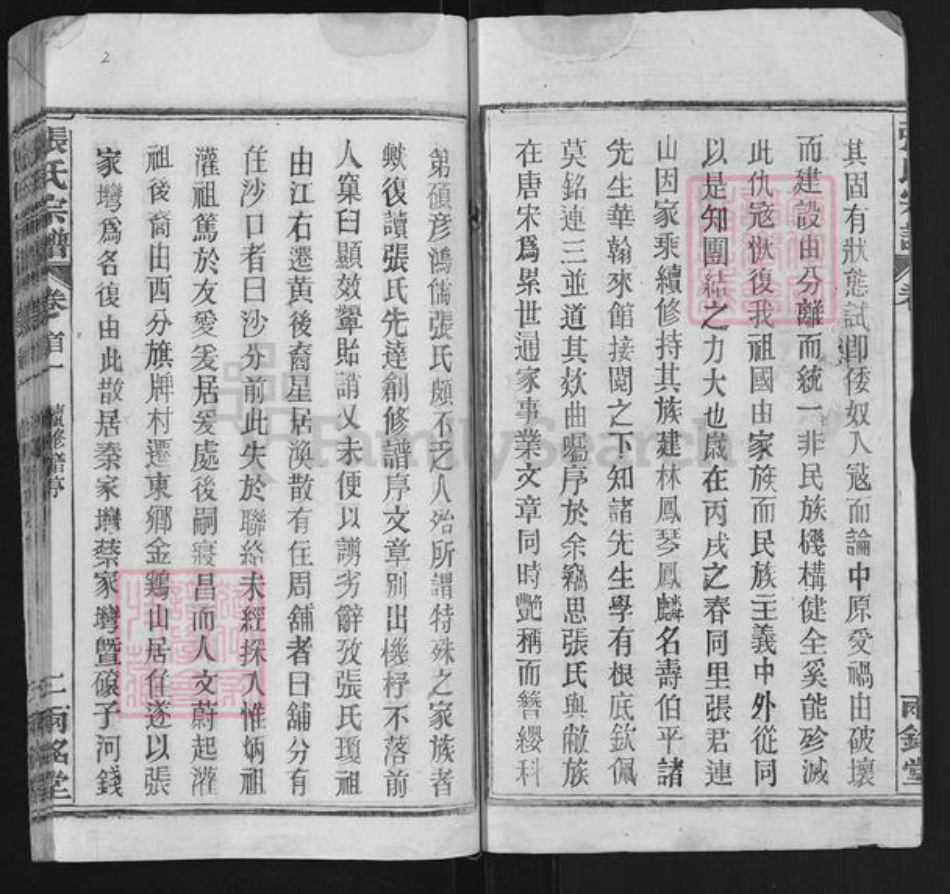 其固有狀態試卽倭奴入寇而論中原受禍由破壞
而建設由分離而統一非民族機構健全奚能殄滅
此仇寇恢復我祖國由家族而民族主義中外從同
以是知團結之力大也歲在丙戌之春同里張君連
山因家乘續修持其族建林鳳琴鳳麟名壽伯平諸
先生華翰來館接閱之下知諸先生學有根底欽佩
莫銘連三並道其欵曲囑序於余竊思張氏與敝族
在唐宋爲累世通家事業文章同時艷稱而簪纓科
第碩彥鴻儒張氏頗不乏人殆所謂特殊之家族者
歟復讀張氏先達創修譜序文章別出機杼不落前
人窠臼顯效顰貽誚又未便以謭劣辭攷張氏瓊祖
由江右遷黃後裔星居渙散有住周舖者曰舖分有
住沙口者曰沙分前此失於聯絡未經採入惟炳祖
灌祖篤於友愛爰居爰處後嗣寖昌而人文蔚起灌
祖後裔由西分旗牌村遷東鄉金鷄山居住遂以張
家塆爲名復由此散居秦家塆蔡家塆暨磙子河錢
張氏宗譜
卷首一
續修譜序
二
兩銘堂
FamilySearch
2